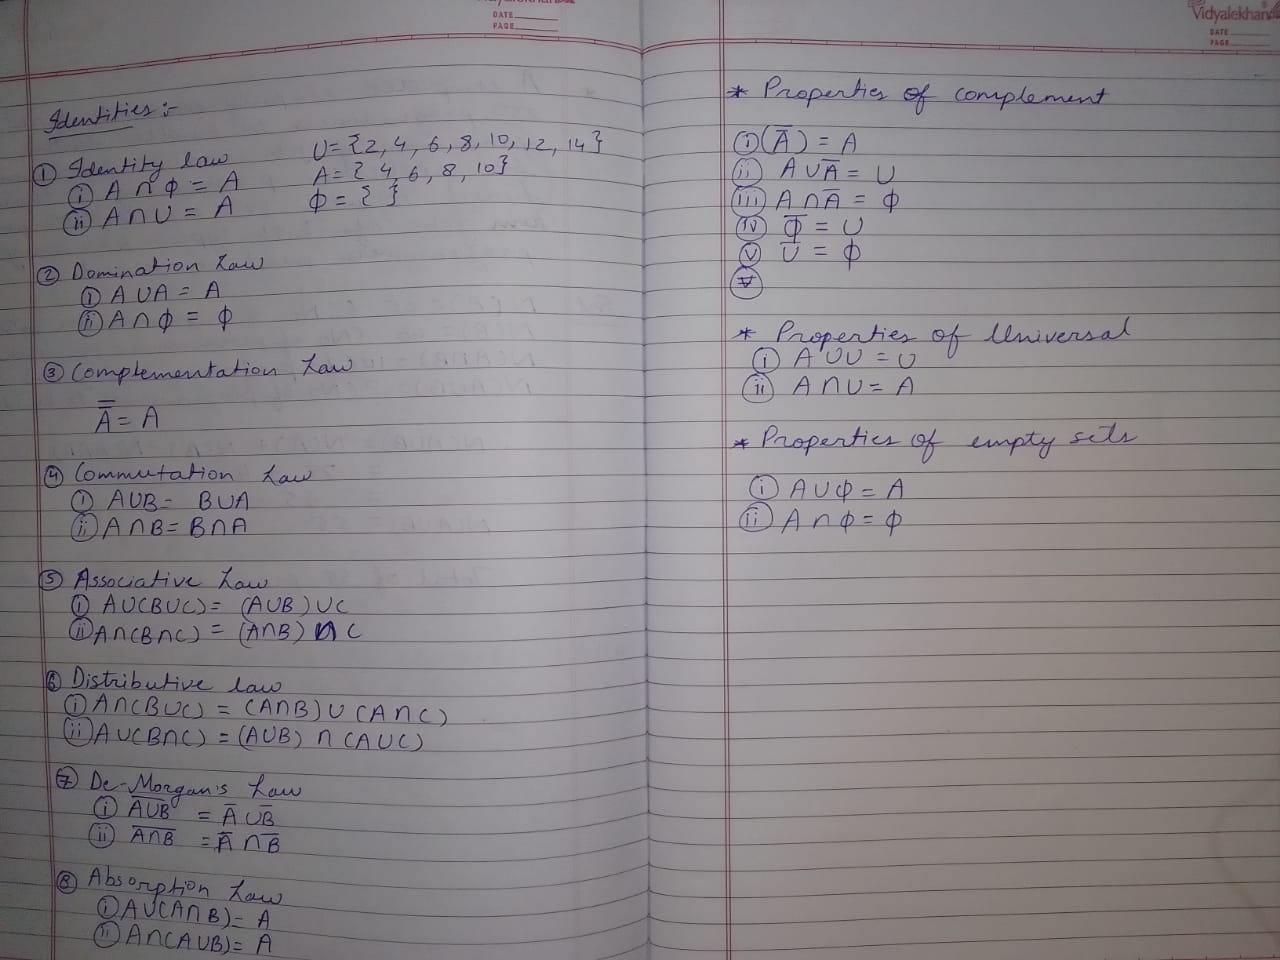 DATE
PAGE
Identities :-
① Identity law U = {2, 4, 6, 8, 10, 12, 14}
ⓘ A ∩ Φ = A A = { 4, 6, 8, 10}
ⓘⓘ A ∩ U = A Φ = { }
② Domination Law
ⓘ A ∪ A = A
ⓘⓘ A ∩ Φ = Φ
③ Complementation Law
A̿ = A
④ Commutation Law
ⓘ A∪B = B∪A
ⓘⓘ A∩B = B∩A
⑤ Associative Law
ⓘ A∪(B∪C) = (A∪B)∪C
ⓘⓘ A∩(B∩C) = (A∩B)∩C
⑥ Distributive law
ⓘ A∩(B∪C) = (A∩B)∪(A∩C)
ⓘⓘ A∪(B∩C) = (A∪B)∩(A∪C)
⑦ De-Morgan's Law
ⓘ A̅∪̅B̅ = A̅ ∪ B̅
ⓘⓘ A̅∩̅B̅ = A̅ ∩ B̅
⑧ Absorption Law
ⓘ A∪(A∩B) = A
ⓘⓘ A∩(A∪B) = A
Vidyalekhan
DATE
PAGE
* Properties of complement
ⓘ (A̅) = A
ⓘⓘ A∪A̅ = U
ⓘⓘⓘ A∩A̅ = Φ
ⓘⓥ Φ̅ = U
ⓥ U̅ = Φ
* Properties of Universal
ⓘ A∪U = U
ⓘⓘ A∩U = A
* Properties of empty sets
ⓘ A∪Φ = A
ⓘⓘ A∩Φ = Φ